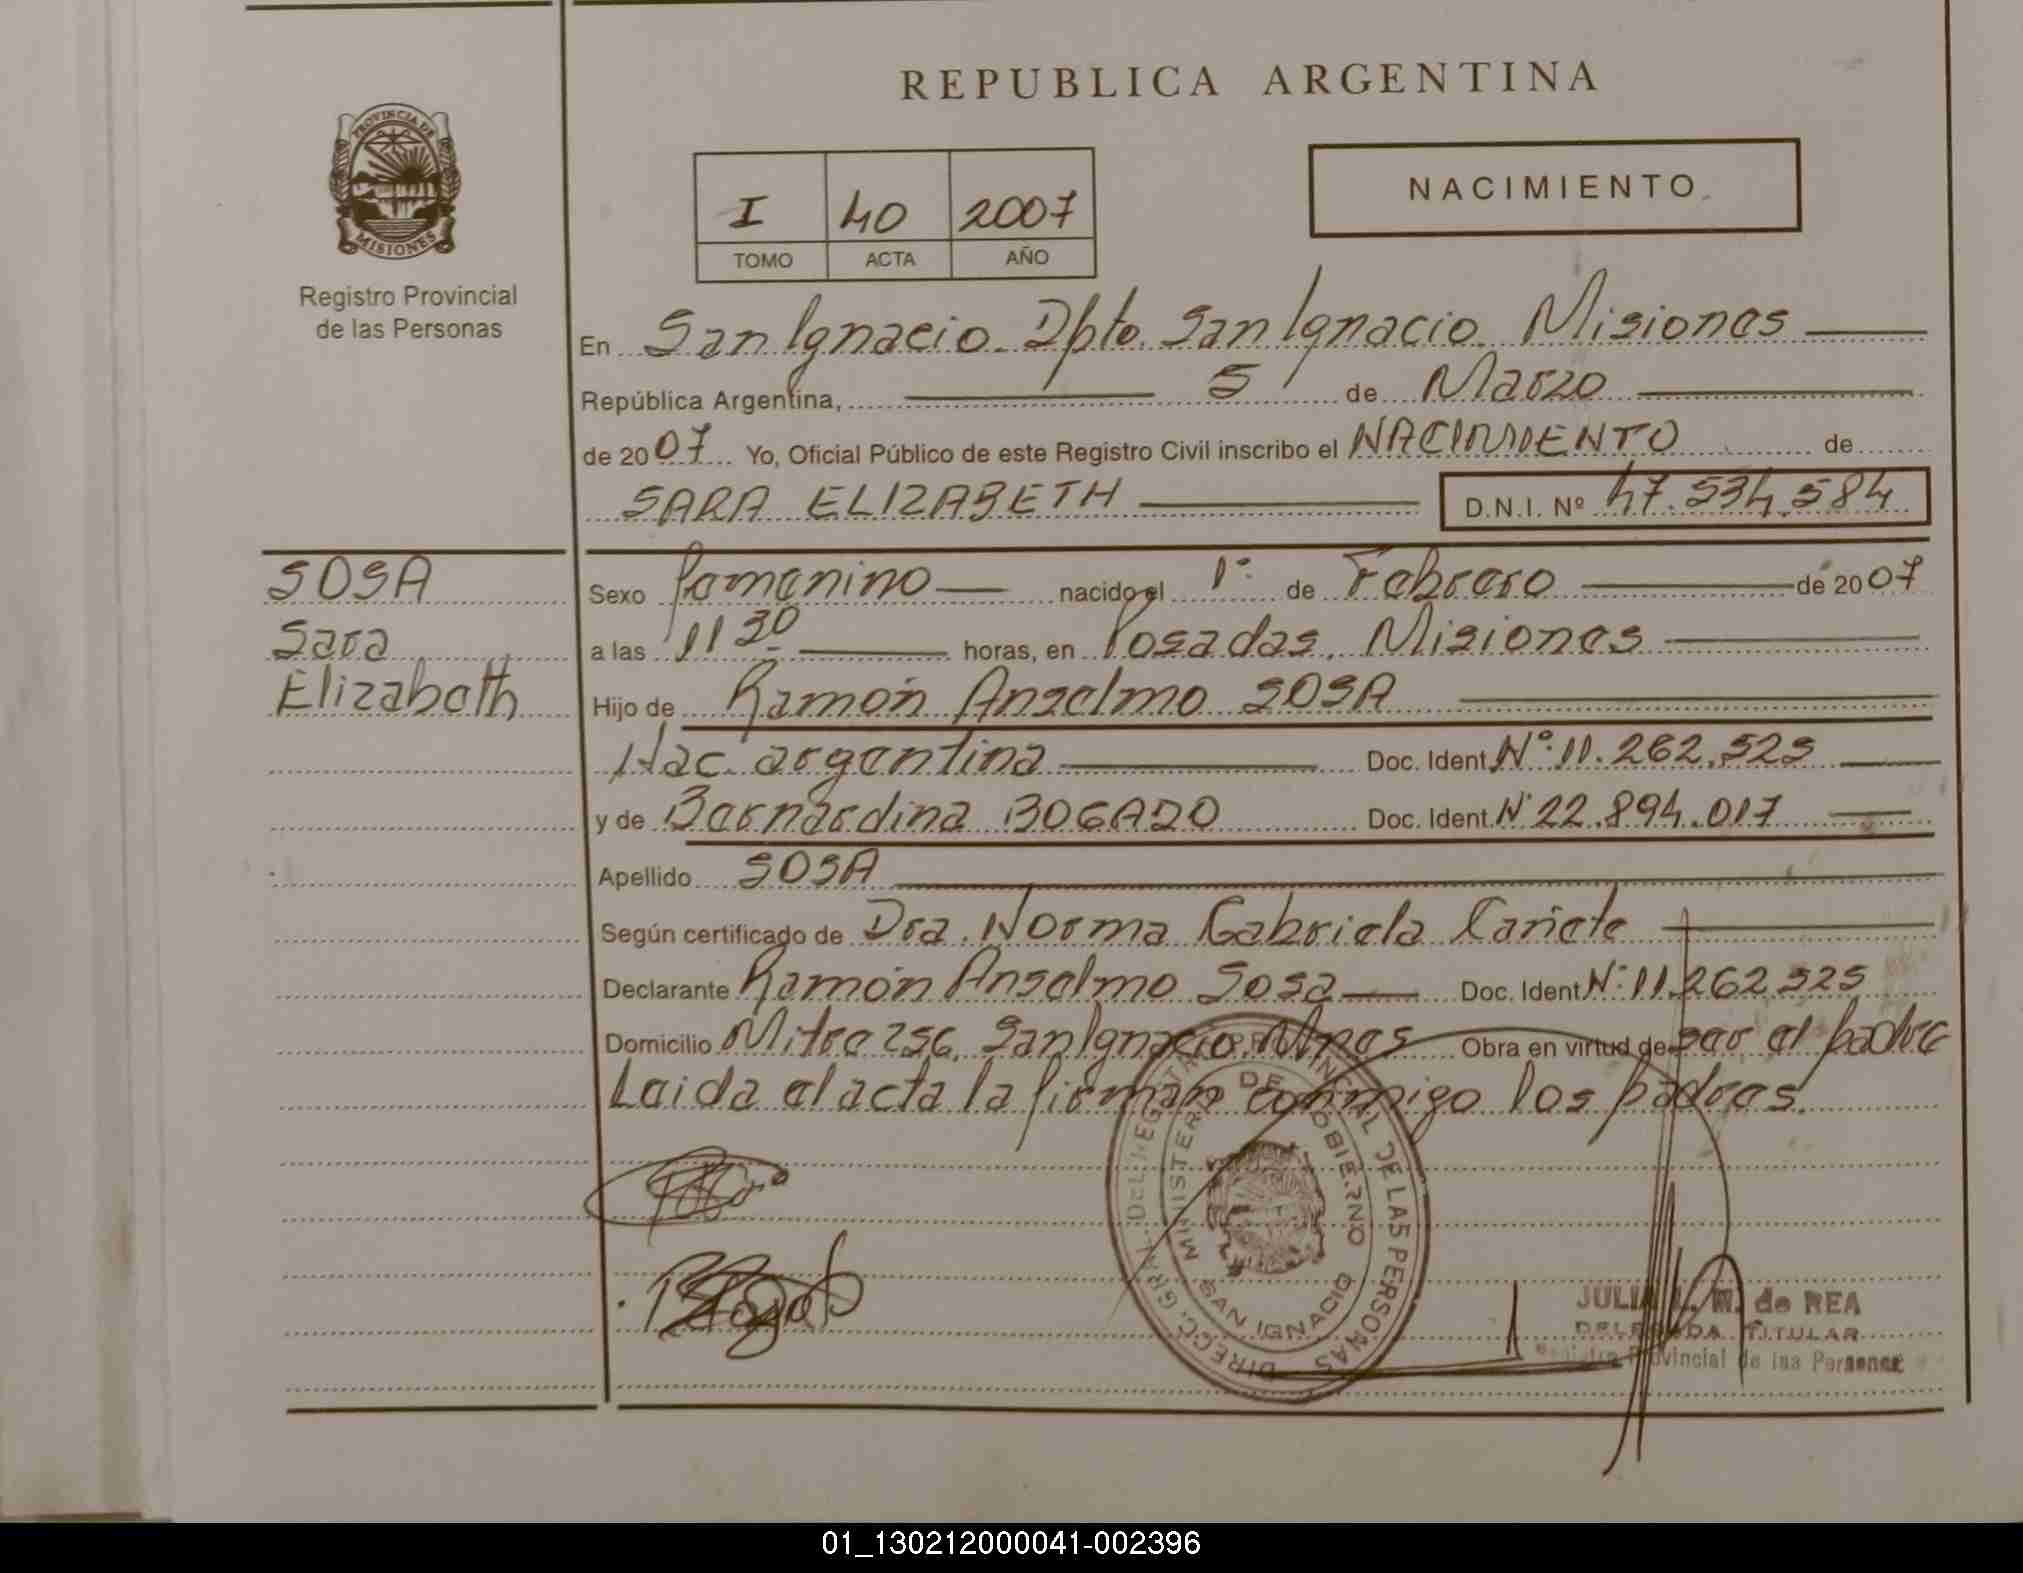 REPUBLICA ARGENTINA
PROVINCIA DE
MISIONES
Registro Provincial
de las Personas
I 40 2007
TOMO ACTA AÑO
NACIMIENTO
En San Ignacio Dpto. San Ignacio Misiones
República Argentina, 5 de Marzo
de 2007 Yo, Oficial Público de este Registro Civil inscribo el NACIMIENTO de
SARA ELIZABETH D.N.I. Nº 47.534.584
SOSA
Sara
Elizabeth
Sexo femenino nacido el 1º de Febrero de 2007
a las 11 30 horas, en Posadas, Misiones
Hijo de Ramón Anselmo SOSA
Nac. argentina Doc. Ident. Nº 11.262.525
y de Bernardina BOGADO Doc. Ident. Nº 22.894.017
Apellido SOSA
Según certificado de Dra. Norma Gabriela Cañete
Declarante Ramón Anselmo Sosa Doc. Ident. Nº 11.262.525
Domicilio Mitre 256, San Ignacio, Mnes Obra en virtud de ser el padre
Leida el acta la firman conmigo los padres.
DIRECC. GRAL. DEL REGISTRO PROVINCIAL DE LAS PERSONAS
MINISTERIO DE GOBIERNO
SAN IGNACIO
JULIA L. M. de REA
DELEGADA TITULAR
Registro Provincial de las Personas
01_130212000041-002396